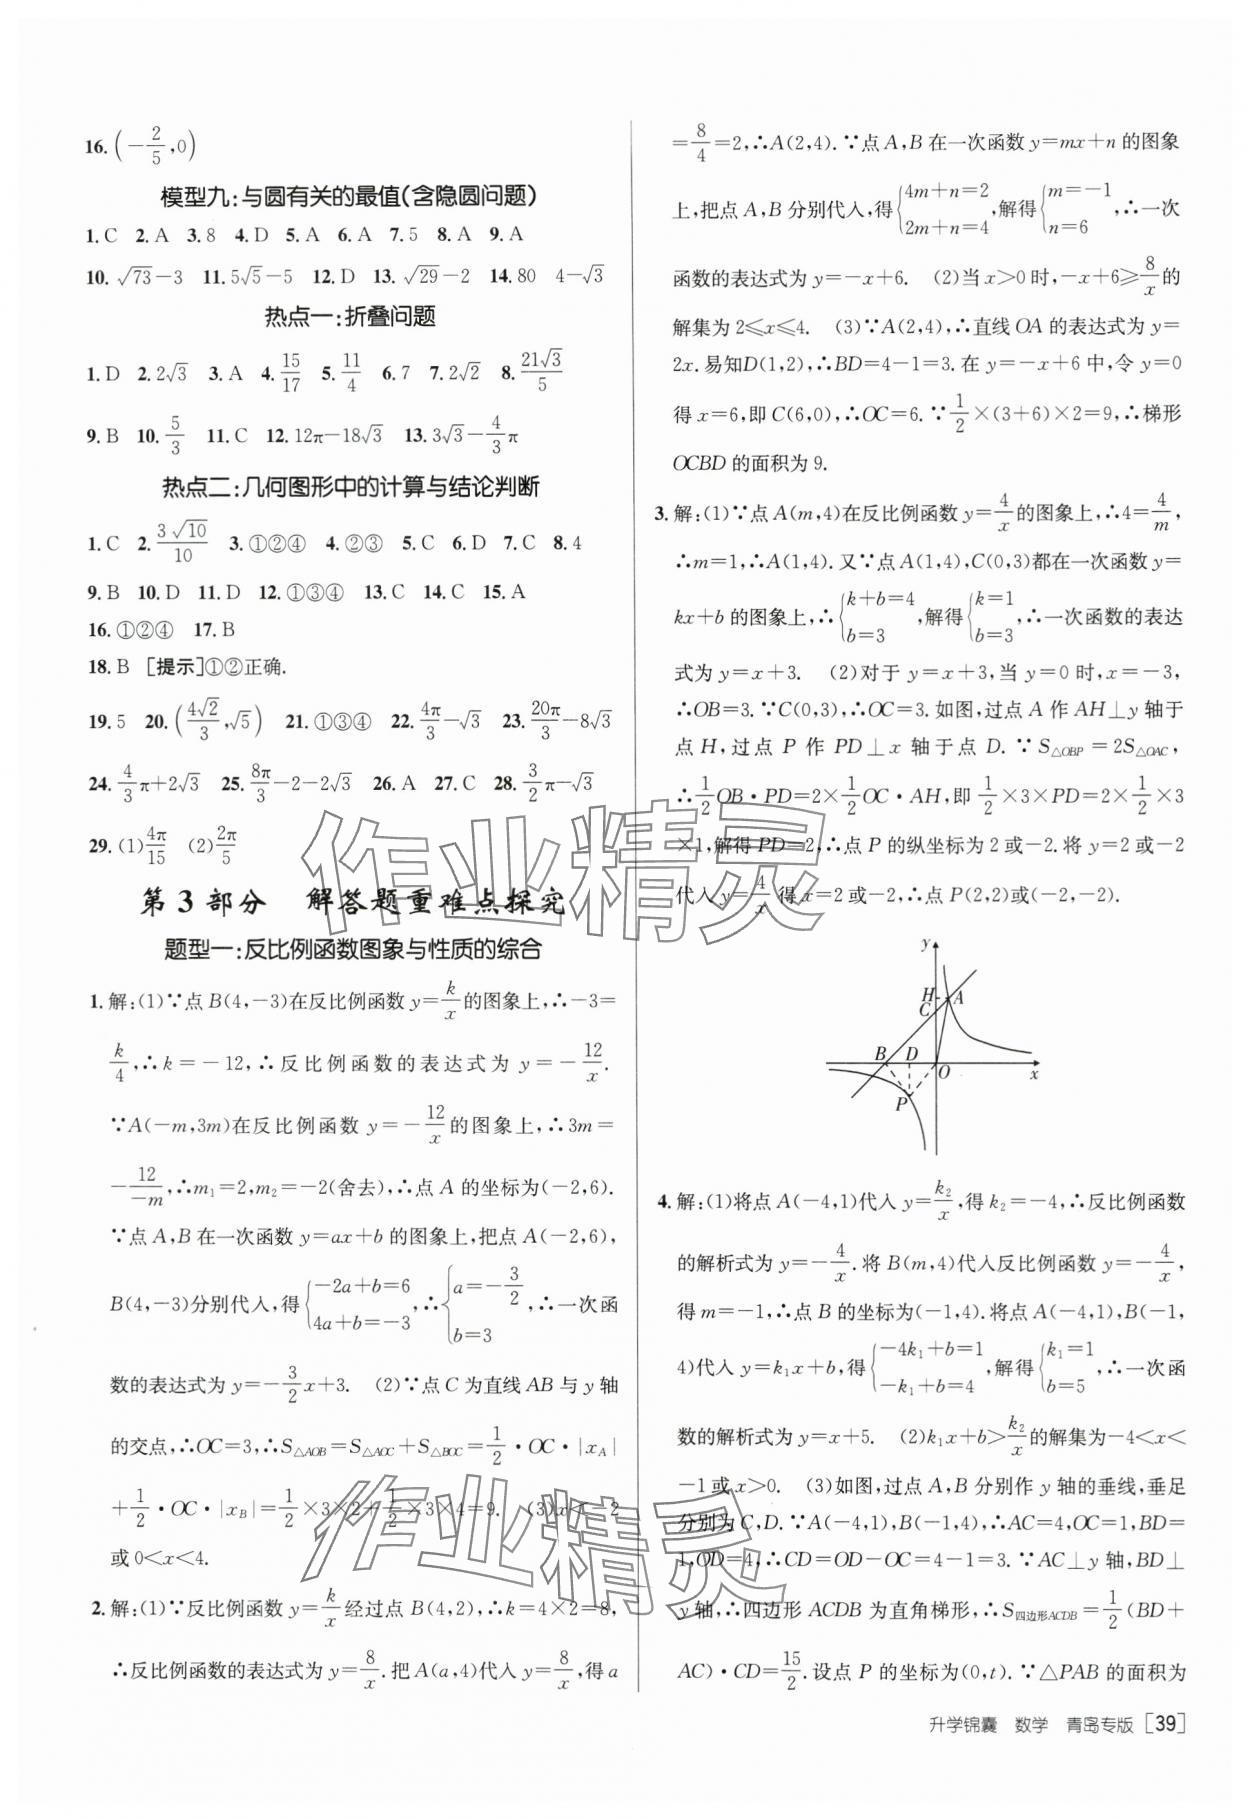 16. (-2/5,0)
模型九:与圆有关的最值(含隐圆问题)
1. C 2. A 3. 8 4. D 5. A 6. A 7. 5 8. A 9. A
10. √73-3 11. 5√5-5 12. D 13. √29-2 14. 80 4-√3
热点一:折叠问题
1. D 2. 2√3 3. A 4. 15/17 5. 11/4 6. 7 7. 2√2 8. 21√3/5
9. B 10. 5/3 11. C 12. 12π-18√3 13. 3√3-4/3π
热点二:几何图形中的计算与结论判断
1. C 2. 3√10/10 3. ①②④ 4. ②③ 5. C 6. D 7. C 8. 4
9. B 10. D 11. D 12. ①③④ 13. C 14. C 15. A
16. ①②④ 17. B
18. B [提示]①②正确.
19. 5 20. (4√2/3,√5) 21. ①③④ 22. 4π/3-√3 23. 20π/3-8√3
24. 4/3π+2√3 25. 8π/3-2-2√3 26. A 27. C 28. 3/2π-√3
29. (1)4π/15 (2)2π/5
第3部分 解答题重难点探究
题型一:反比例函数图象与性质的综合
1. 解:(1)∵点B(4,-3)在反比例函数y=k/x的图象上,∴-3=
k/4,∴k=-12,∴反比例函数的表达式为y=-12/x.
∵A(-m,3m)在反比例函数y=-12/x的图象上,∴3m=
-12/-m,∴m₁=2,m₂=-2(舍去),∴点A的坐标为(-2,6).
∵点A,B在一次函数y=ax+b的图象上,把点A(-2,6),
B(4,-3)分别代入,得{-2a+b=6 4a+b=-3,∴{a=-3/2 b=3,∴一次函
数的表达式为y=-3/2x+3. (2)∵点C为直线AB与y轴
的交点,∴OC=3,∴S△AOB=S△AOC+S△BOC=1/2·OC·|xA|
+1/2·OC·|xB|=1/2×3×2+1/2×3×4=9. (3)x<-2
或0<x<4.
2. 解:(1)∵反比例函数y=k/x经过点B(4,2),∴k=4×2=8,
∴反比例函数的表达式为y=8/x.把A(a,4)代入y=8/x,得a
=8/4=2,∴A(2,4).∵点A,B在一次函数y=mx+n的图象
上,把点A,B分别代入,得{4m+n=2 2m+n=4,解得{m=-1 n=6,∴一次
函数的表达式为y=-x+6. (2)当x>0时,-x+6≥8/x的
解集为2≤x≤4. (3)∵A(2,4),∴直线OA的表达式为y=
2x.易知D(1,2),∴BD=4-1=3.在y=-x+6中,令y=0
得x=6,即C(6,0),∴OC=6.∵1/2×(3+6)×2=9,∴梯形
OCBD的面积为9.
3. 解:(1)∵点A(m,4)在反比例函数y=4/x的图象上,∴4=4/m,
∴m=1,∴A(1,4).又∵点A(1,4),C(0,3)都在一次函数y=
kx+b的图象上,∴{k+b=4 b=3,解得{k=1 b=3,∴一次函数的表达
式为y=x+3. (2)对于y=x+3,当y=0时,x=-3,
∴OB=3.∵C(0,3),∴OC=3.如图,过点A作AH⊥y轴于
点H,过点P作PD⊥x轴于点D.∵S△OBP=2S△OAC,
∴1/2OB·PD=2×1/2OC·AH,即1/2×3×PD=2×1/2×3
×1,解得PD=2,∴点P的纵坐标为2或-2.将y=2或-2
代入y=4/x得x=2或-2,∴点P(2,2)或(-2,-2).
y
H A
C
B D O x
P
4. 解:(1)将点A(-4,1)代入y=k₂/x,得k₂=-4,∴反比例函数
的解析式为y=-4/x.将B(m,4)代入反比例函数y=-4/x,
得m=-1,∴点B的坐标为(-1,4).将点A(-4,1),B(-1,
4)代入y=k₁x+b,得{-4k₁+b=1 -k₁+b=4,解得{k₁=1 b=5,∴一次函
数的解析式为y=x+5. (2)k₁x+b>k₂/x的解集为-4<x<
-1或x>0. (3)如图,过点A,B分别作y轴的垂线,垂足
分别为C,D.∵A(-4,1),B(-1,4),∴AC=4,OC=1,BD=
1,OD=4,∴CD=OD-OC=4-1=3.∵AC⊥y轴,BD⊥
y轴,∴四边形ACDB为直角梯形,∴S四边形ACDB=1/2(BD+
AC)·CD=15/2.设点P的坐标为(0,t).∵△PAB的面积为
升学锦囊 数学 青岛专版 [39]
作业精灵
作业精灵